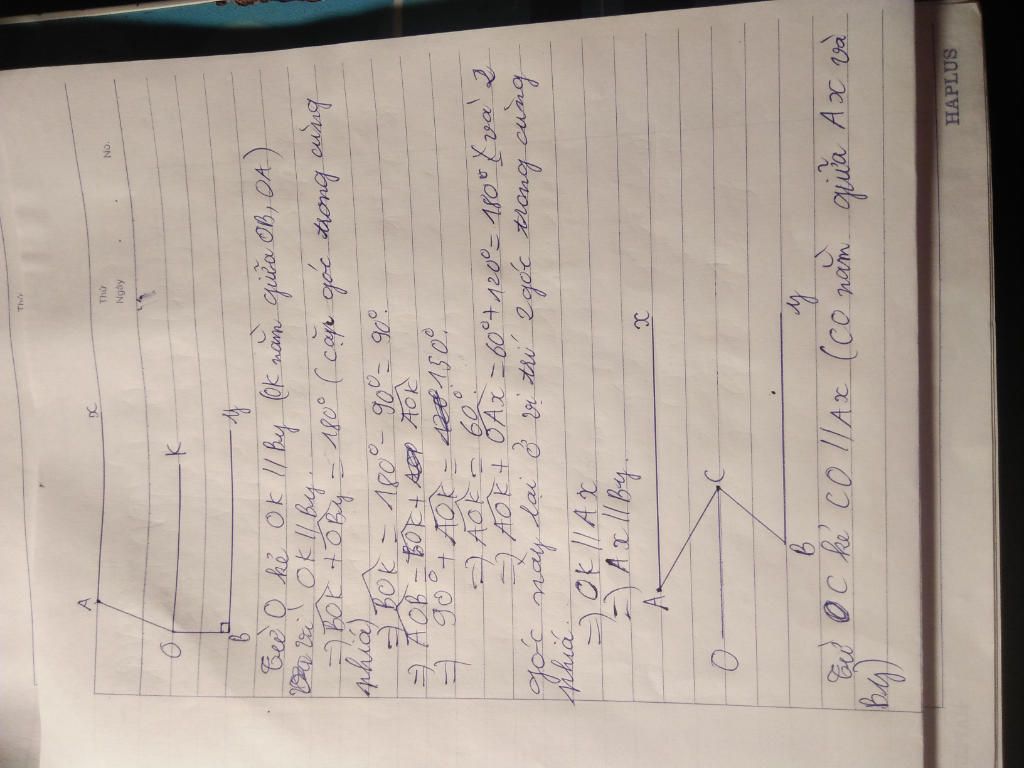 Thứ
No.
Thứ
Ngày
A
x
O
K
B
y
Từ O kẻ OK // By (OK nằm giữa OB, OA)
Vì OK // By
=) BOK + OBy = 180° (cặp góc trong cùng
phía)
=) BOK = 180° - 90° = 90°.
=) AOB = BOK + AOK
=) 90° + AOK = 150°
=) AOK = 60°
=) AOK + OAx = 60° + 120° = 180° (và 2
góc này lại ở vị trí 2 góc trong cùng
phía.
=) OK // Ax
=) Ax // By.
A
x
O
C
B
y
Từ OC kẻ CO // Ax (CO nằm giữa Ax và
By)
HAPLUS